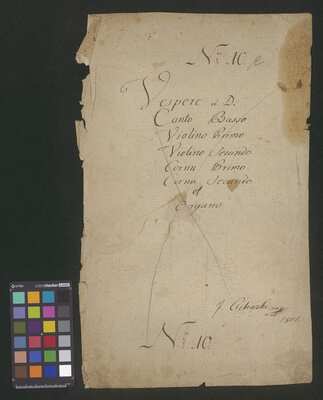 No 10
Vespere a D.
Canto Basso
Violino Primo
Violino Secundo
Cornu Primo
Corno Secundo
et
Organo
No 10.